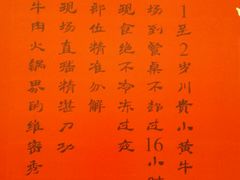 1至2岁川贵小黄牛
场到餐桌不超过16小时
现食绝不冷冻过夜
部位精准分解
现场直播精湛刀功
牛肉火锅界的维密秀